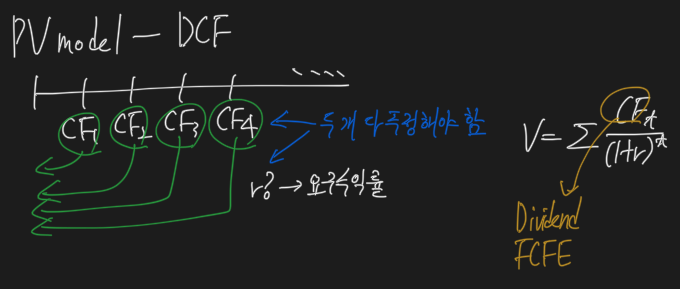 PV model - DCF
CF1 CF2 CF3 CF4
두 개 다 측정해야 함
r? → 요구수익률
V = Σ CFt / (1+r)^t
Dividend
FCFE